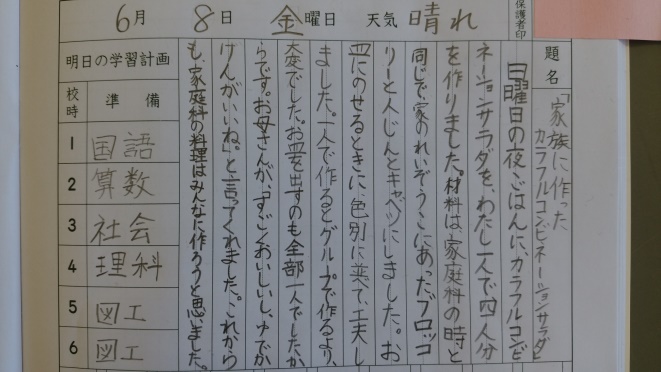 6月 8日 金曜日 天気 晴れ
保護者印
題名
「家族に作った
カラフルコンビネーションサラダ」
日曜日の夜ごはんに、カラフルコンビ
ネーションサラダを、わたし一人で四人分
を作りました。材料は、家庭科の時と
同じで、家のれいぞうこにあったブロッコ
リーと人じんとキャベツにしました。お
皿にのせるときに、色別に並べて、工夫し
ました。一人で作るとグループで作るより、
大変でした。お皿を出すのも全部一人でしたか
らです。お母さんが、「すごくおいしいし、ゆでか
げんがいいね。」と言ってくれました。これから
も、家庭科の料理はみんなに作ろうと思いました。
明日の学習計画
校時 準備
1 国語
2 算数
3 社会
4 理科
5 図工
6 図工